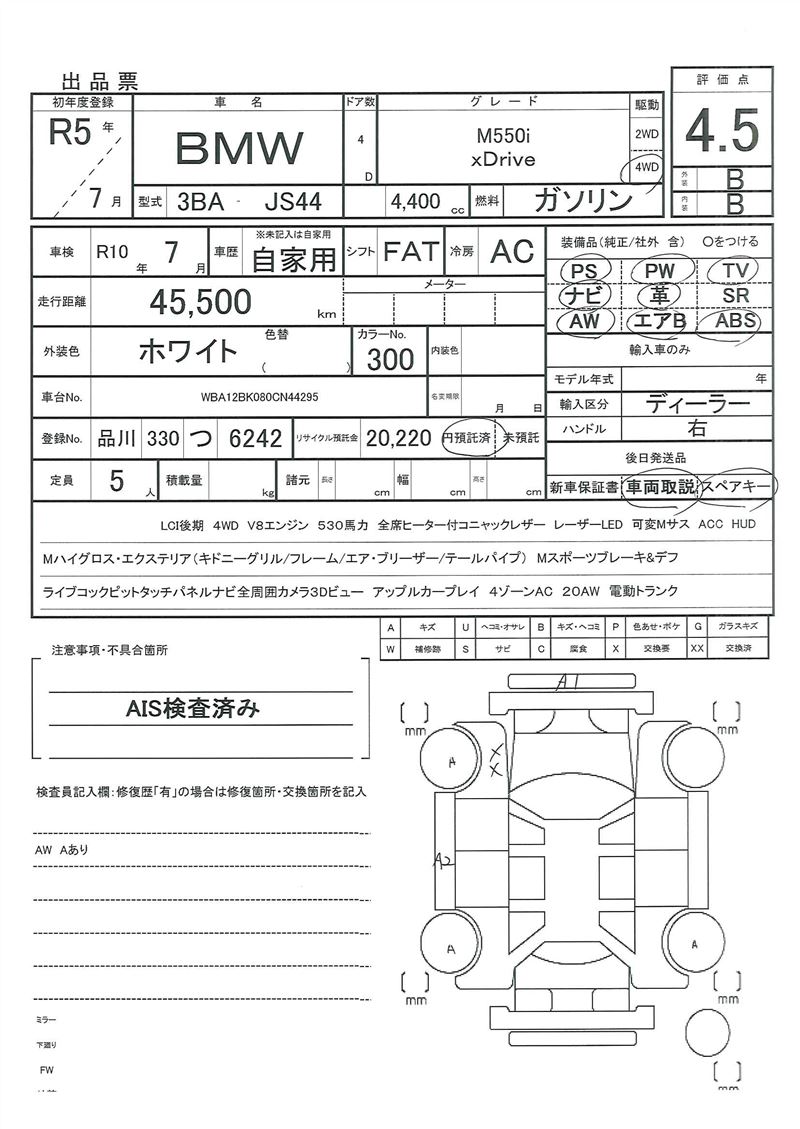 出品票
初年度登録 車名 ドア数 グレード 駆動 評価点
R5年 BMW 4 D M550i xDrive 2WD 4WD 4.5
7月 型式 3BA - JS44 4,400 cc 燃料 ガソリン
外装 B
内装 B
車検 R10年 7月 車歴 ※未記入は自家用 自家用 シフト FAT 冷房 AC
装備品(純正/社外 含) ○をつける
PS PW TV
ナビ 革 SR
AW エアB ABS
走行距離 45,500 km メーター
輸入車のみ
外装色 ホワイト 色替 ( ) カラーNo. 300 内装色
モデル年式 年
車台No. WBA12BK080CN44295 名変期限 月 日
輸入区分 ディーラー
ハンドル 右
登録No. 品川 330 つ 6242 リサイクル預託金 20,220 円預託済 未預託
後日発送品
定員 5人 積載量 kg 諸元 長さ cm 幅 cm 高さ cm
新車保証書 車両取説 スペアキー
LCI後期 4WD V8エンジン 530馬力 全席ヒーター付コニャックレザー レーザーLED 可変Mサス ACC HUD
Mハイグロス・エクステリア(キドニーグリル/フレーム/エア・ブリーザー/テールパイプ) Mスポーツブレーキ&デフ
ライブコックピットタッチパネルナビ全周囲カメラ3Dビュー アップルカープレイ 4ゾーンAC 20AW 電動トランク
A キズ U ヘコミ・オサレ B キズ・ヘコミ P 色あせ・ボケ G ガラスキズ
W 補修跡 S サビ C 腐食 X 交換要 XX 交換済
注意事項・不具合箇所
AIS検査済み
検査員記入欄:修復歴「有」の場合は修復箇所・交換箇所を記入
AW Aあり
ミラー
下廻り
FW
A1
[ ] mm
[ ] mm
A
XX
A2
A
A
[ ] mm
[ ] mm
[ ] mm